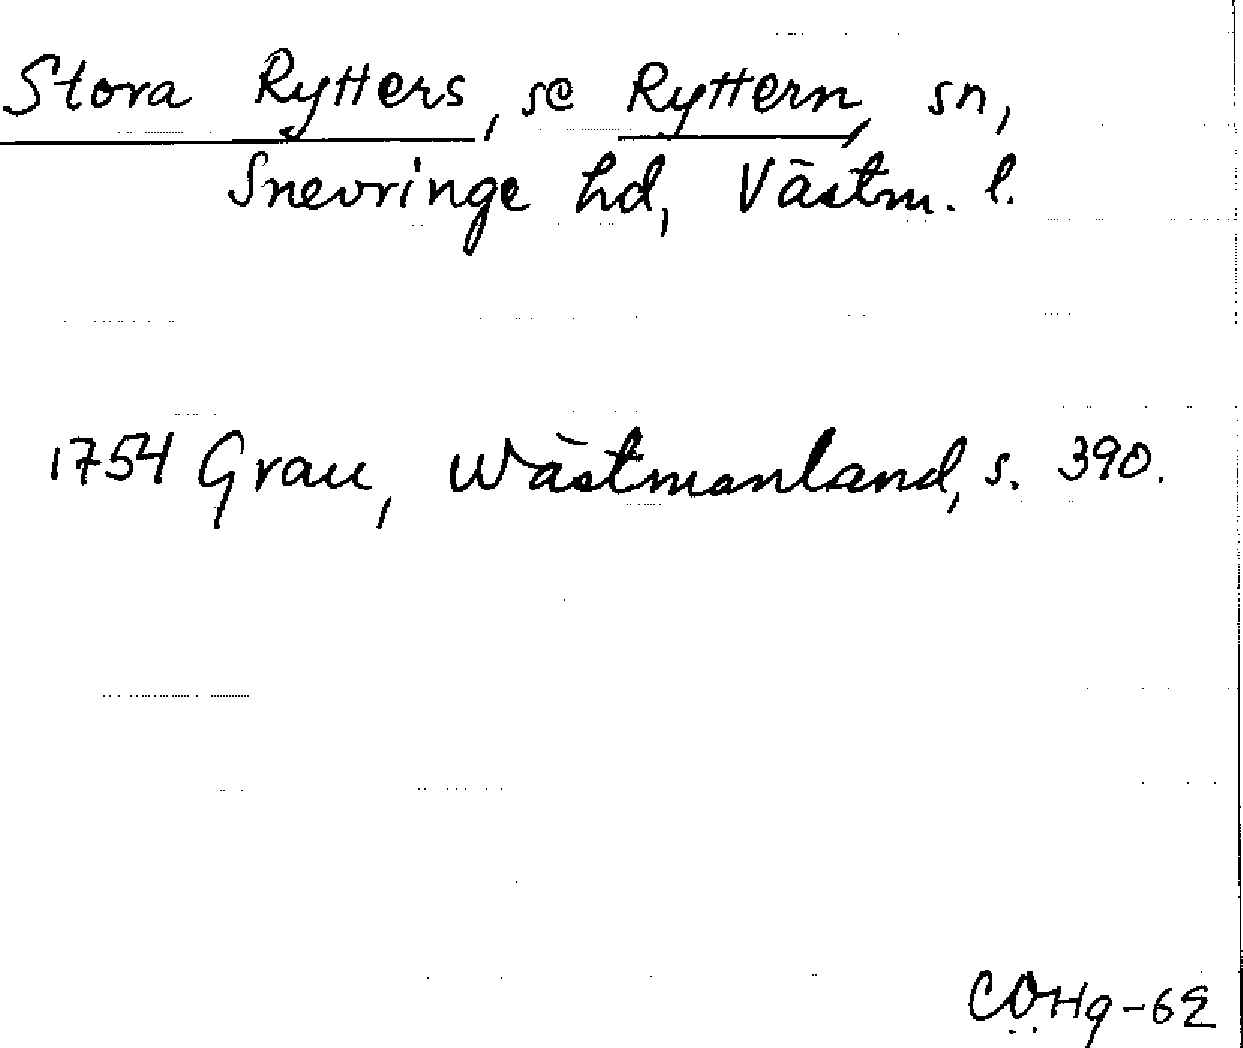 Stora Rytters, se Ryttern, sn,
Snevringe hd, Västm. l.
1754 Grau, Wästmanland, s. 390.